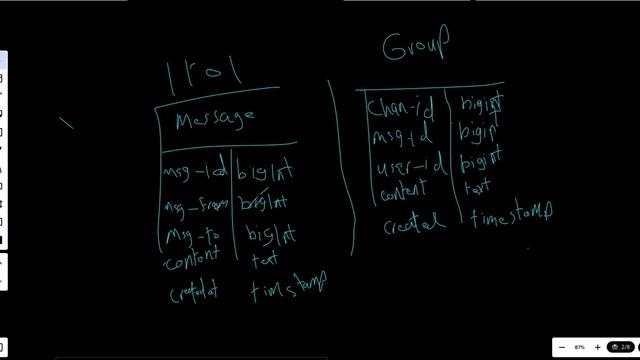 1 to 1
Message
msg-id bigInt
msg-from bigInt
msg-to bigInt
content text
created at timestamp
Group
chan-id bigint
msg-id bigint
user-id bigint
content text
created timestamp
87%
2/8